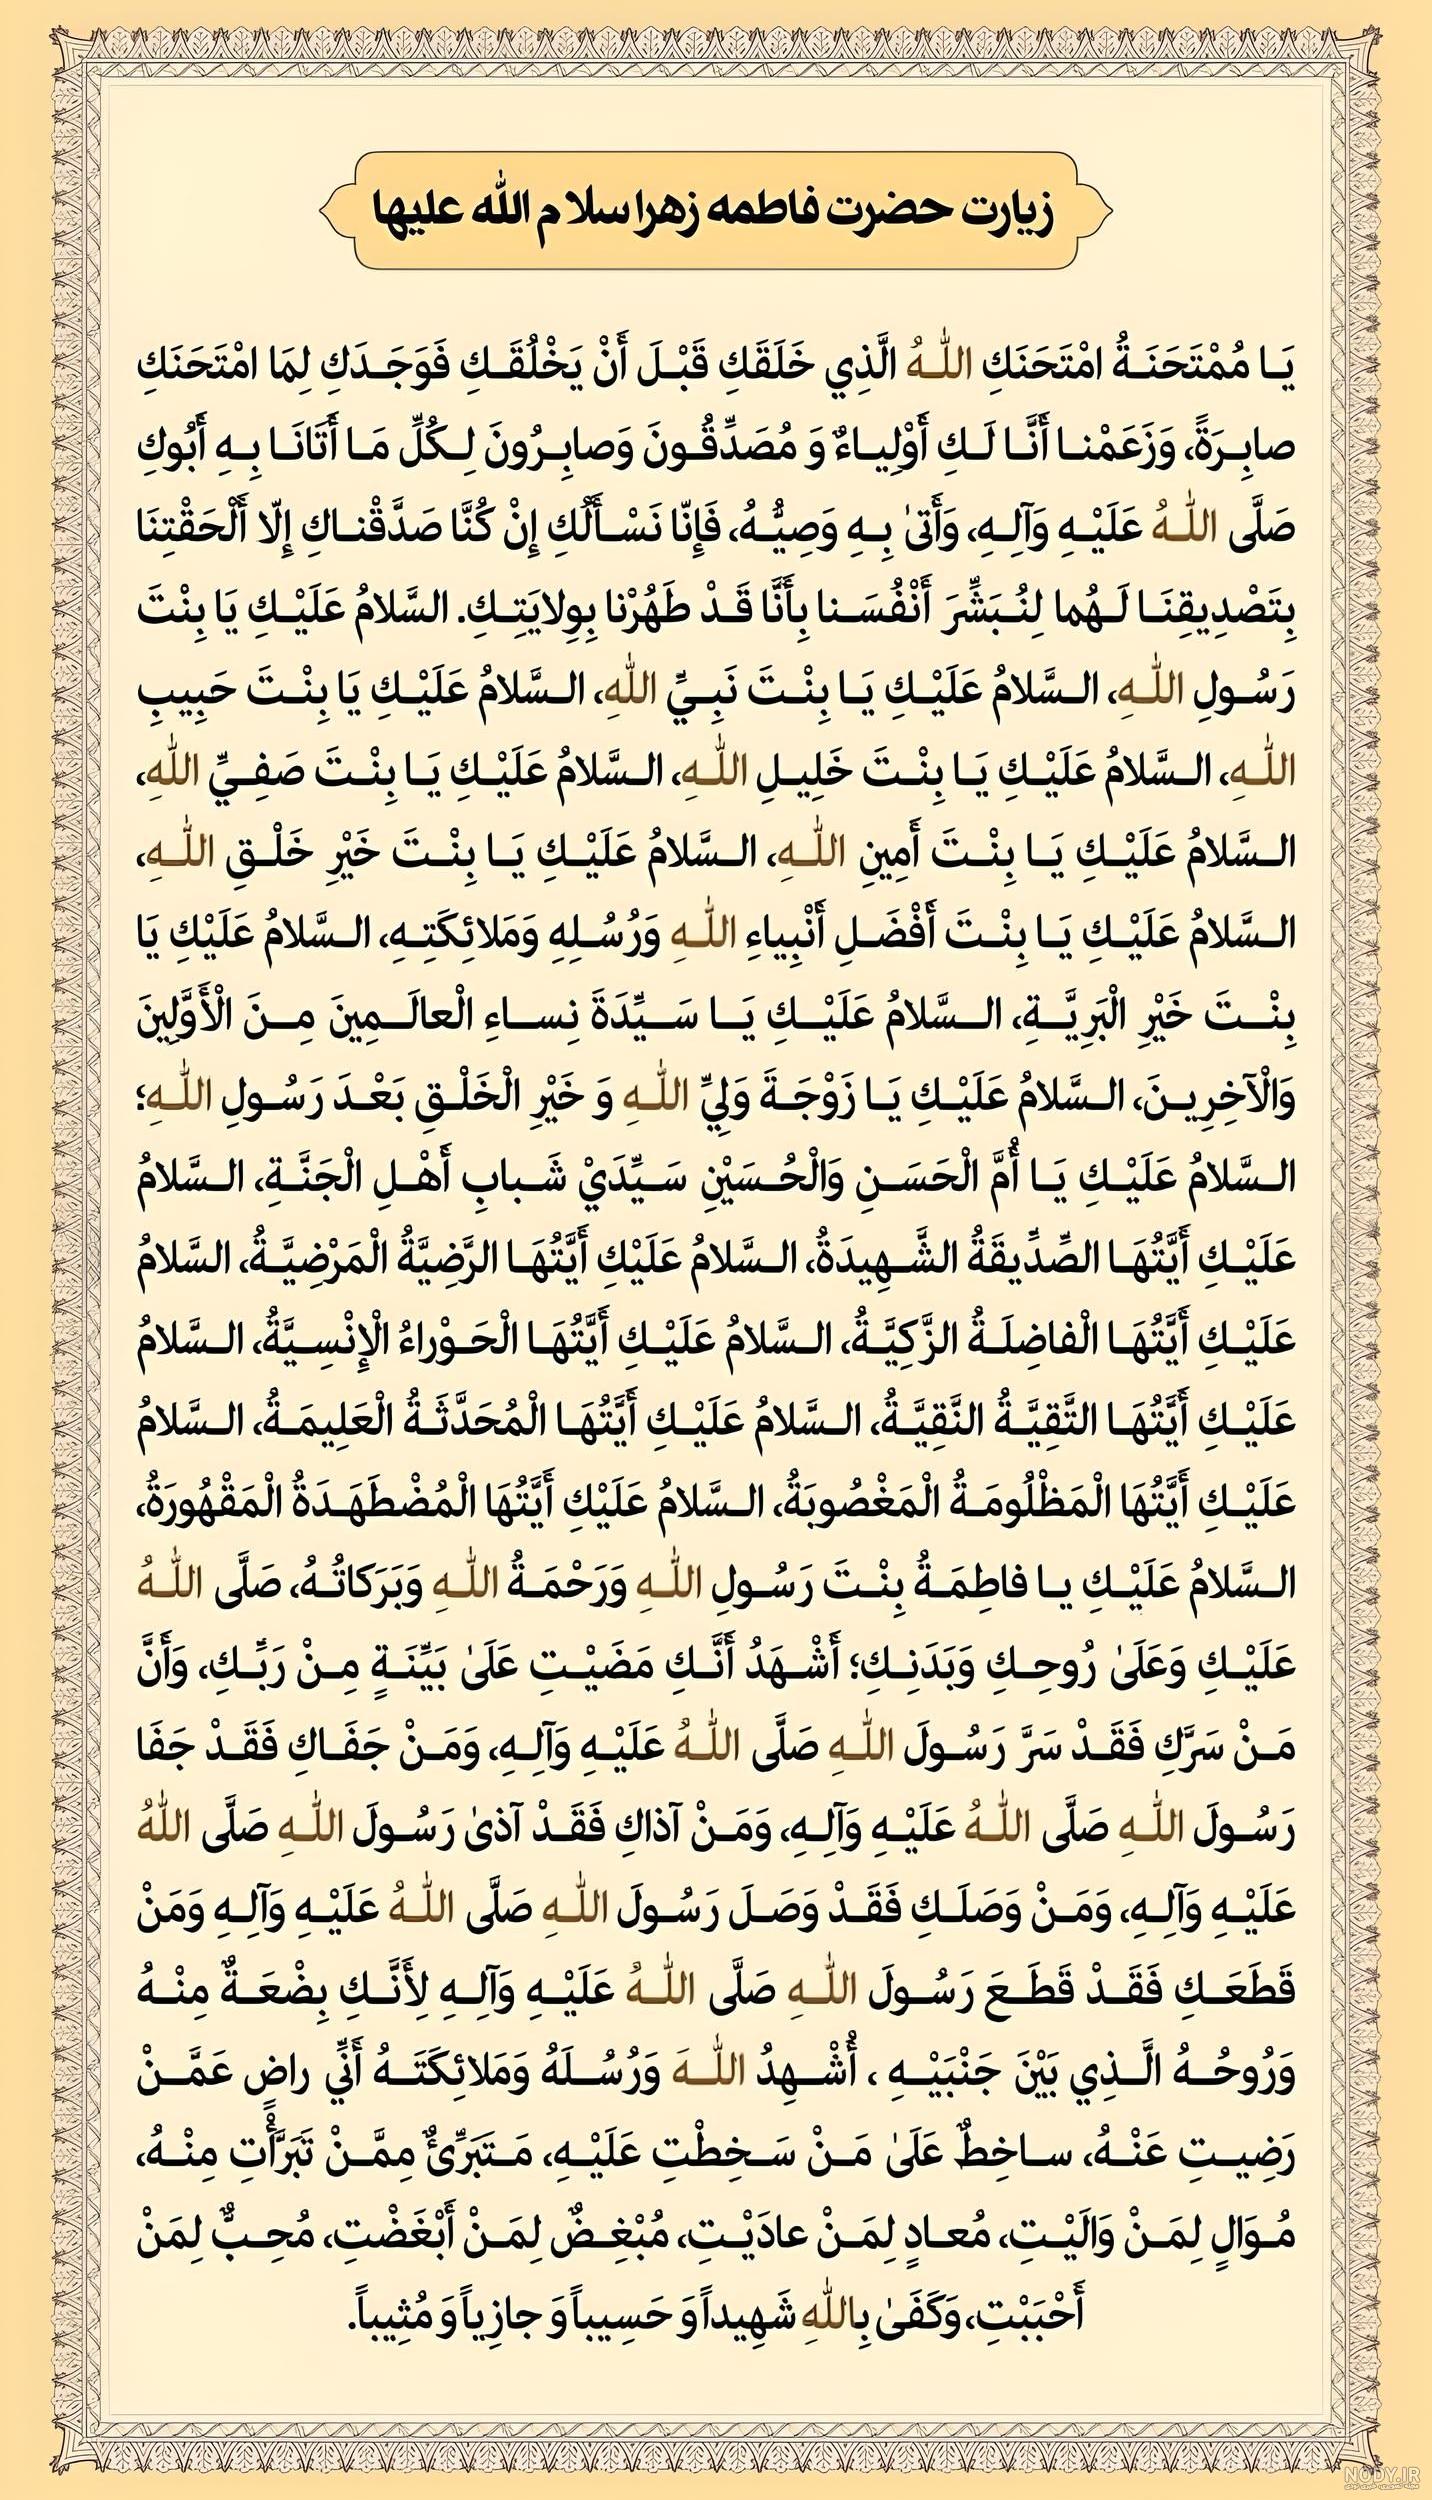 زیارت حضرت فاطمه زهرا سلام الله علیها
يَا مُمْتَحَنَةُ امْتَحَنَكِ اللّٰهُ الَّذِي خَلَقَكِ قَبْلَ أَنْ يَخْلُقَكِ فَوَجَدَكِ لِمَا امْتَحَنَكِ
صابِرَةً، وَزَعَمْنا أَنَّا لَكِ أَوْلِياءٌ وَ مُصَدِّقُونَ وَصابِرُونَ لِكُلِّ مَا أَتَانَا بِهِ أَبُوكِ
صَلَّى اللّٰهُ عَلَيْهِ وَآلِهِ، وَأَتىٰ بِهِ وَصِيُّهُ، فَإِنّا نَسْأَلُكِ إِنْ كُنَّا صَدَّقْناكِ إِلّا أَلْحَقْتِنَا
بِتَصْدِيقِنَا لَهُما لِنُبَشِّرَ أَنْفُسَنا بِأَنَّا قَدْ طَهُرْنا بِوِلايَتِكِ. السَّلامُ عَلَيْكِ يَا بِنْتَ
رَسُولِ اللّٰهِ، السَّلامُ عَلَيْكِ يَا بِنْتَ نَبِيِّ اللّٰهِ، السَّلامُ عَلَيْكِ يَا بِنْتَ حَبِيبِ
اللّٰهِ، السَّلامُ عَلَيْكِ يَا بِنْتَ خَلِيلِ اللّٰهِ، السَّلامُ عَلَيْكِ يَا بِنْتَ صَفِيِّ اللّٰهِ،
السَّلامُ عَلَيْكِ يَا بِنْتَ أَمِينِ اللّٰهِ، السَّلامُ عَلَيْكِ يَا بِنْتَ خَيْرِ خَلْقِ اللّٰهِ،
السَّلامُ عَلَيْكِ يَا بِنْتَ أَفْضَلِ أَنْبِياءِ اللّٰهِ وَرُسُلِهِ وَمَلائِكَتِهِ، السَّلامُ عَلَيْكِ يَا
بِنْتَ خَيْرِ الْبَرِيَّةِ، السَّلامُ عَلَيْكِ يَا سَيِّدَةَ نِساءِ الْعالَمِينَ مِنَ الْأَوَّلِينَ
وَالْآخِرِينَ، السَّلامُ عَلَيْكِ يَا زَوْجَةَ وَلِيِّ اللّٰهِ وَ خَيْرِ الْخَلْقِ بَعْدَ رَسُولِ اللّٰهِ؛
السَّلامُ عَلَيْكِ يَا أُمَّ الْحَسَنِ وَالْحُسَيْنِ سَيِّدَيْ شَبابِ أَهْلِ الْجَنَّةِ، السَّلامُ
عَلَيْكِ أَيَّتُهَا الصِّدِّيقَةُ الشَّهِيدَةُ، السَّلامُ عَلَيْكِ أَيَّتُهَا الرَّضِيَّةُ الْمَرْضِيَّةُ، السَّلامُ
عَلَيْكِ أَيَّتُهَا الْفاضِلَةُ الزَّكِيَّةُ، السَّلامُ عَلَيْكِ أَيَّتُهَا الْحَوْراءُ الْإِنْسِيَّةُ، السَّلامُ
عَلَيْكِ أَيَّتُهَا التَّقِيَّةُ النَّقِيَّةُ، السَّلامُ عَلَيْكِ أَيَّتُهَا الْمُحَدَّثَةُ الْعَلِيمَةُ، السَّلامُ
عَلَيْكِ أَيَّتُهَا الْمَظْلُومَةُ الْمَغْصُوبَةُ، السَّلامُ عَلَيْكِ أَيَّتُهَا الْمُضْطَهَدَةُ الْمَقْهُورَةُ،
السَّلامُ عَلَيْكِ يا فاطِمَةُ بِنْتَ رَسُولِ اللّٰهِ وَرَحْمَةُ اللّٰهِ وَبَرَكاتُهُ، صَلَّى اللّٰهُ
عَلَيْكِ وَعَلَىٰ رُوحِكِ وَبَدَنِكِ؛ أَشْهَدُ أَنَّكِ مَضَيْتِ عَلَىٰ بَيِّنَةٍ مِنْ رَبِّكِ، وَأَنَّ
مَنْ سَرَّكِ فَقَدْ سَرَّ رَسُولَ اللّٰهِ صَلَّى اللّٰهُ عَلَيْهِ وَآلِهِ، وَمَنْ جَفَاكِ فَقَدْ جَفَا
رَسُولَ اللّٰهِ صَلَّى اللّٰهُ عَلَيْهِ وَآلِهِ، وَمَنْ آذاكِ فَقَدْ آذىٰ رَسُولَ اللّٰهِ صَلَّى اللّٰهُ
عَلَيْهِ وَآلِهِ، وَمَنْ وَصَلَكِ فَقَدْ وَصَلَ رَسُولَ اللّٰهِ صَلَّى اللّٰهُ عَلَيْهِ وَآلِهِ وَمَنْ
قَطَعَكِ فَقَدْ قَطَعَ رَسُولَ اللّٰهِ صَلَّى اللّٰهُ عَلَيْهِ وَآلِهِ لِأَنَّكِ بِضْعَةٌ مِنْهُ
وَرُوحُهُ الَّذِي بَيْنَ جَنْبَيْهِ ، أُشْهِدُ اللّٰهَ وَرُسُلَهُ وَمَلائِكَتَهُ أَنِّي راضٍ عَمَّنْ
رَضِيتِ عَنْهُ، ساخِطٌ عَلَىٰ مَنْ سَخِطْتِ عَلَيْهِ، مَتَبَرِّئٌ مِمَّنْ تَبَرَّأْتِ مِنْهُ،
مُوَالٍ لِمَنْ وَالَيْتِ، مُعادٍ لِمَنْ عادَيْتِ، مُبْغِضٌ لِمَنْ أَبْغَضْتِ، مُحِبٌّ لِمَنْ
أَحْبَبْتِ، وَكَفَىٰ بِاللّٰهِ شَهِيداً وَ حَسِيباً وَ جازِياً وَ مُثِيباً.
NODY.IR